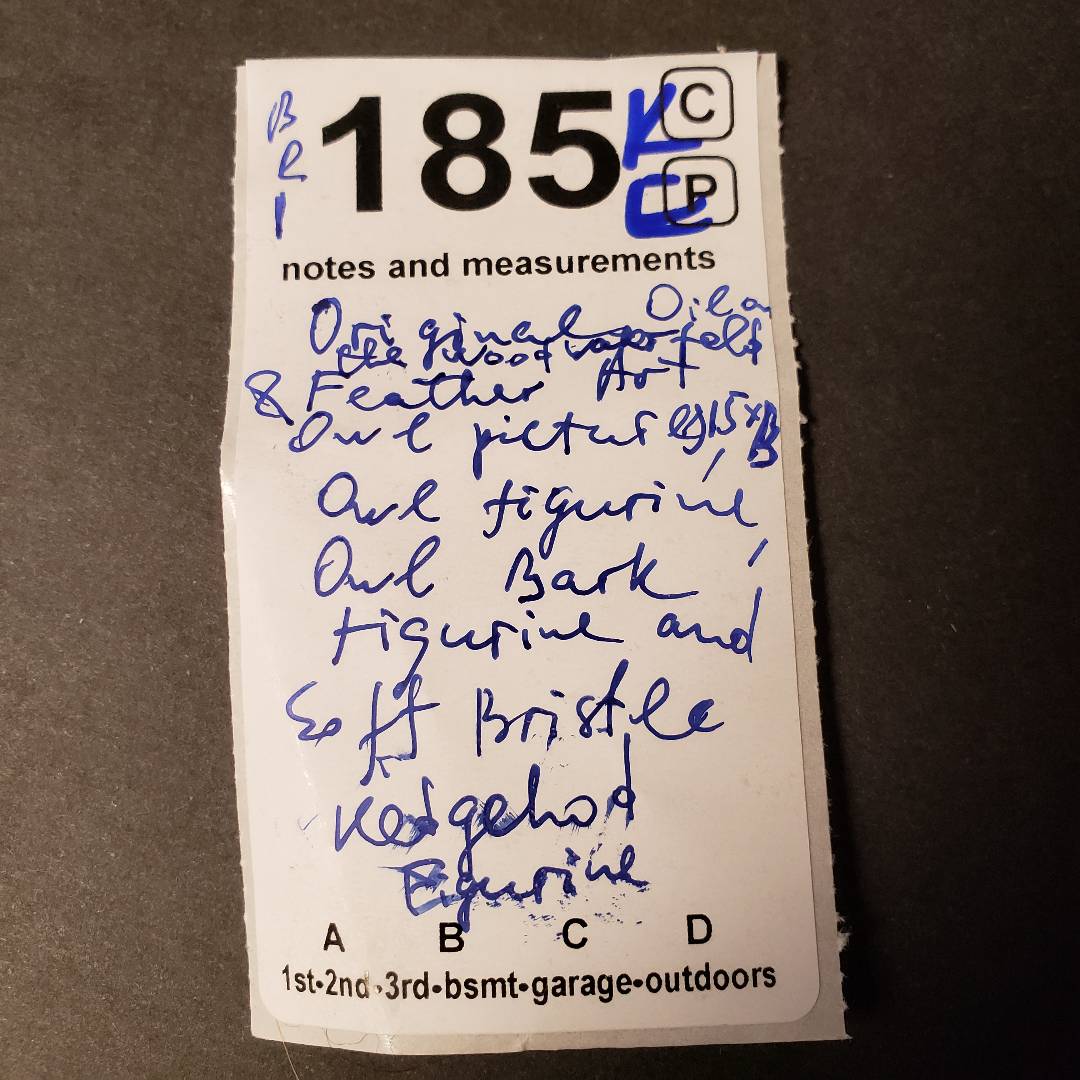 BRI
185
KC
C
P
notes and measurements
Original Oil on
the wood
& Feather Art
Owl picture 15x
Owl figurine,
Owl Bark
figurine and
Soft Bristle
Figurine
A B C D
1st•2nd•3rd•bsmt•garage•outdoors